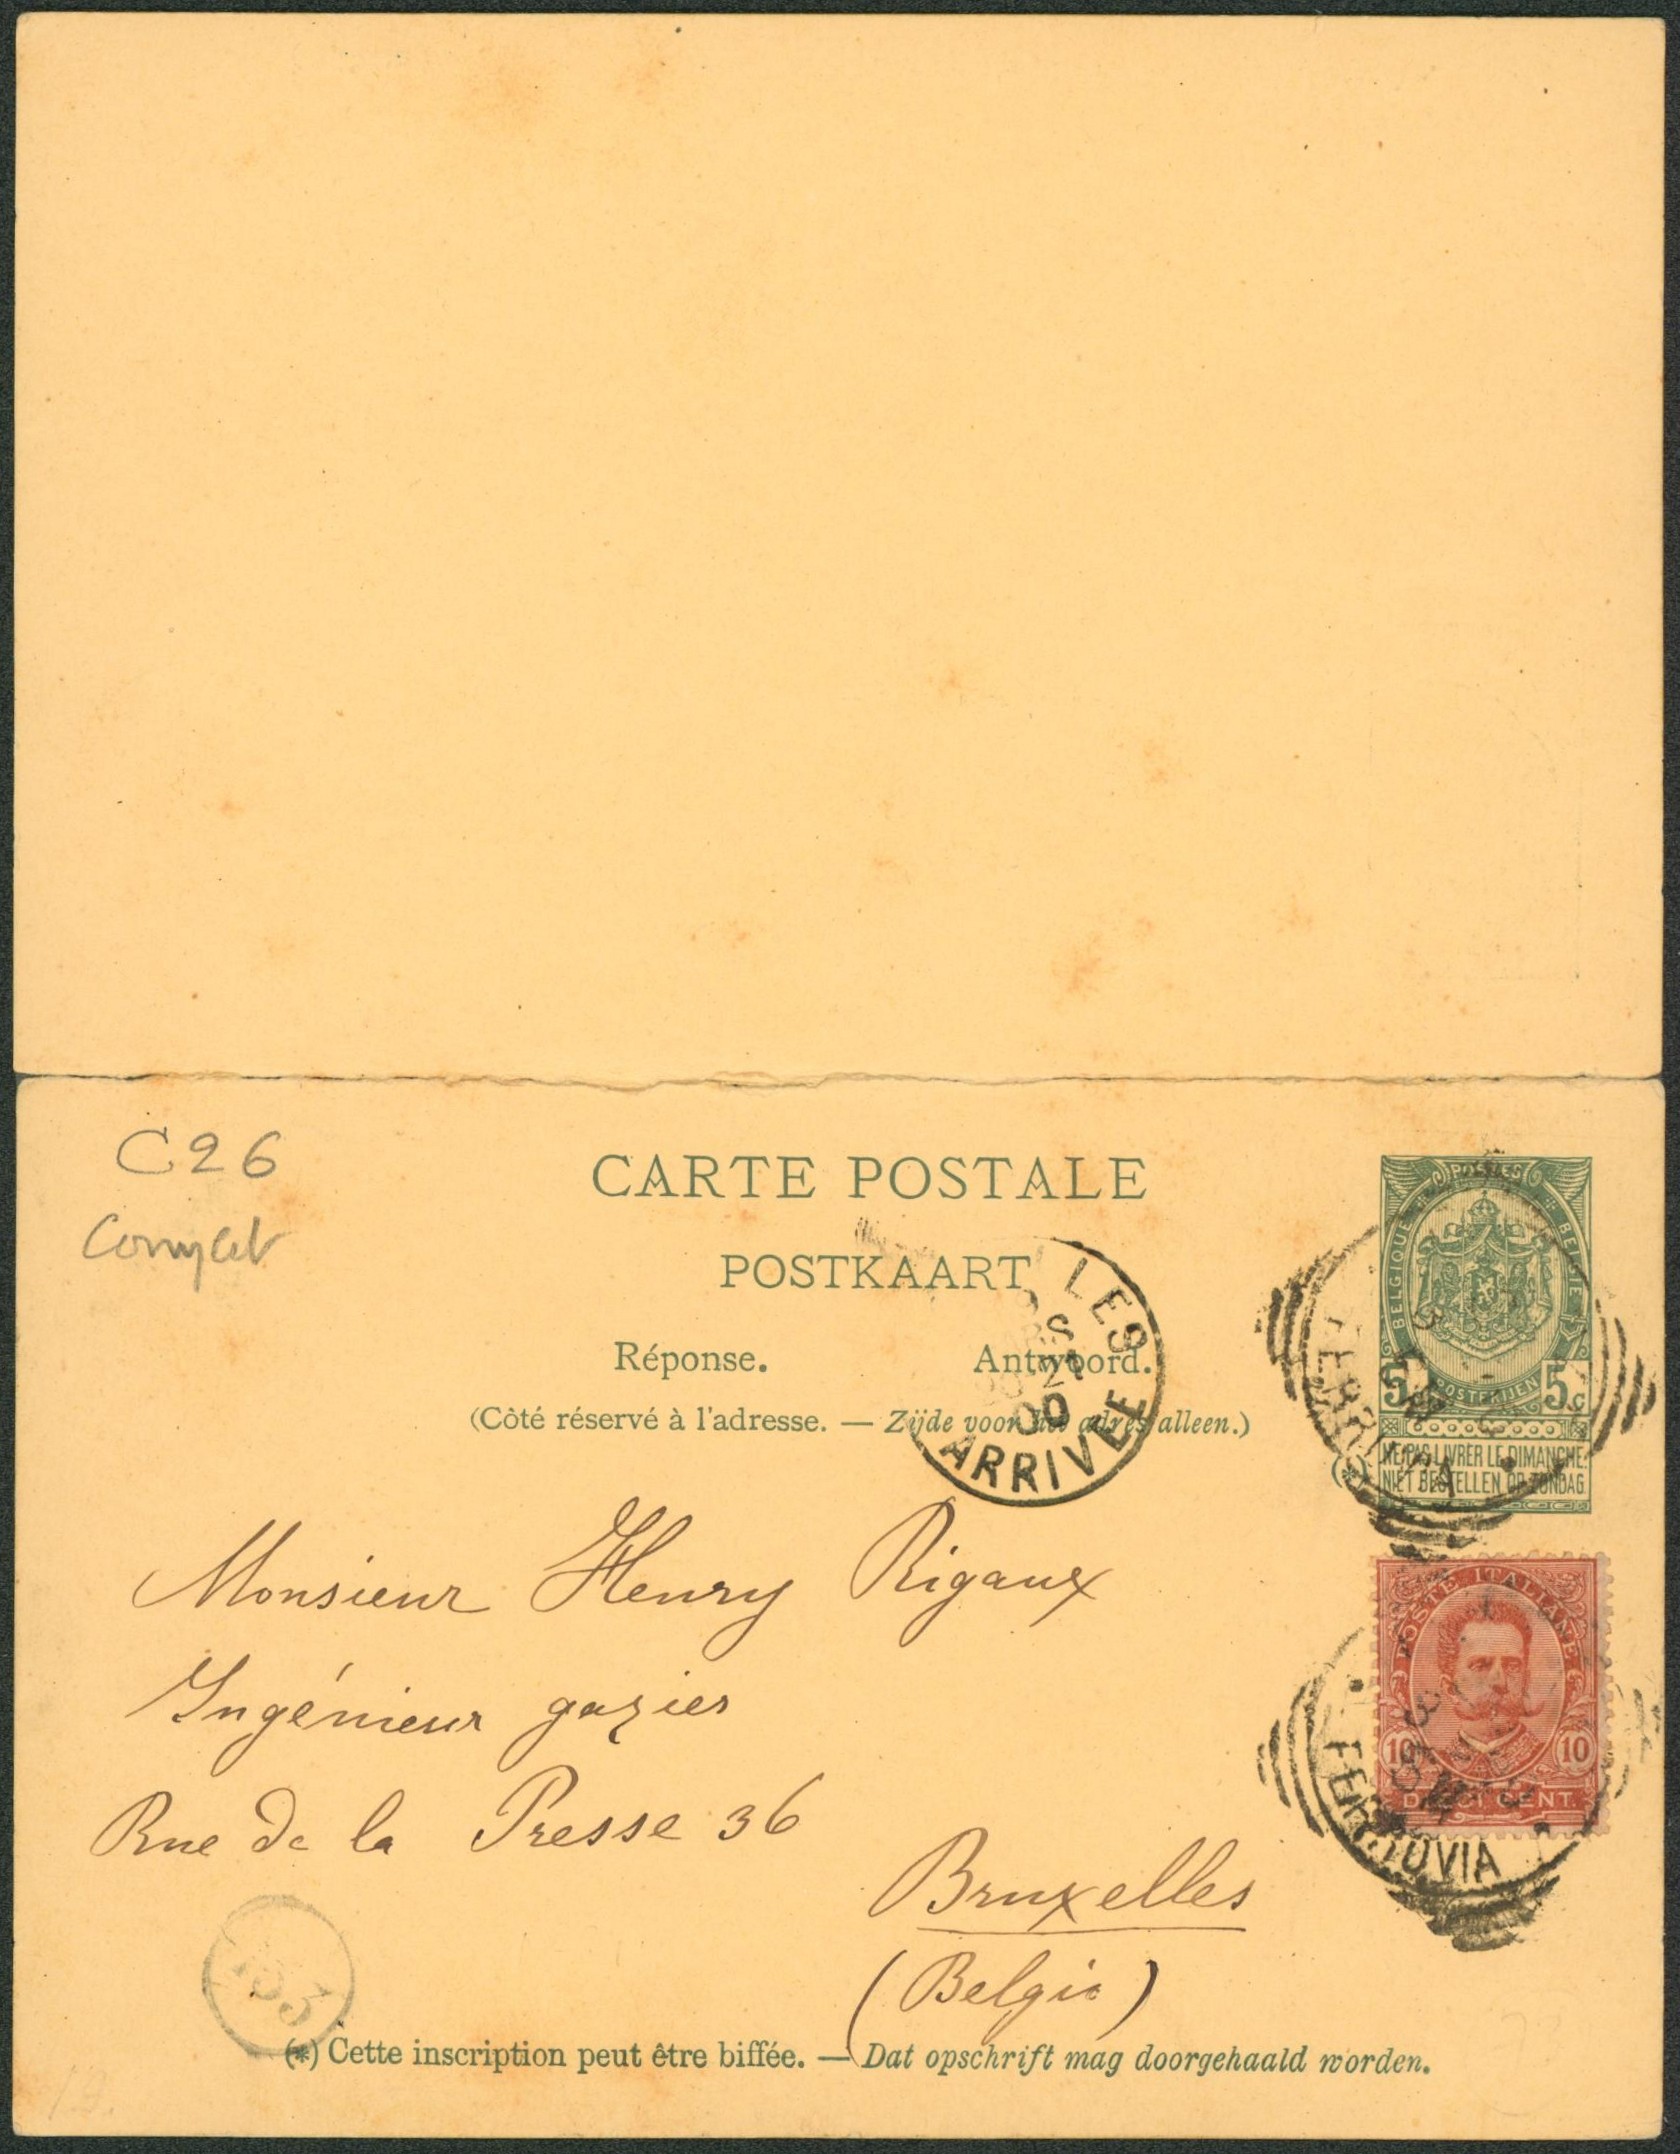 C26
Complet
CARTE POSTALE
POSTKAART
Réponse. Antwoord.
(Côté réservé à l'adresse. — Zijde voor het adres alleen.)
LES
00
ARRIVÉE
POSTES
BELGIQUE BELGIE
5c POSTERIJEN 5c
(*) NE PAS LIVRER LE DIMANCHE.
NIET BESTELLEN OP ZONDAG.
Monsieur Henry Rigaux
Ingénieur gazier
Rue de la Presse 36
Bruxelles
(Belgio)
POSTE ITALIANE
10 10
DIECI CENT.
FERROVIA
(*) Cette inscription peut être biffée. — Dat opschrift mag doorgehaald worden.